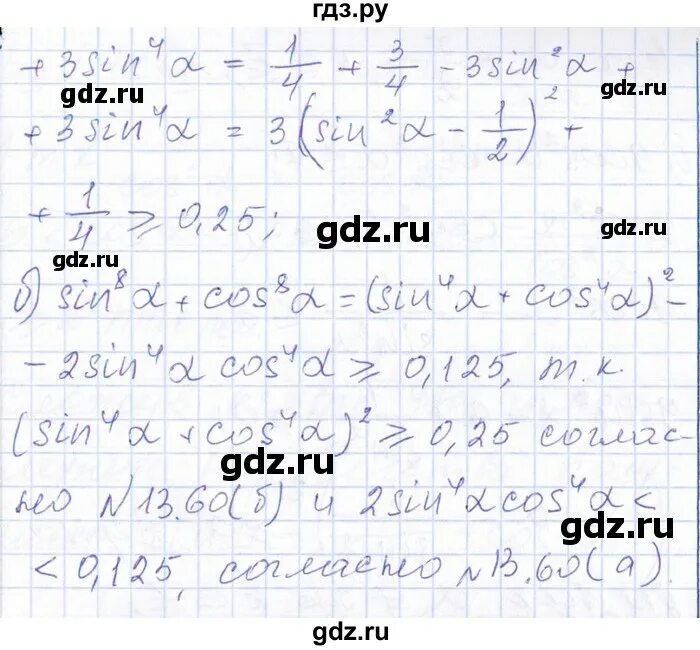 гдз.ру
+ 3sin⁴α = 1/4 + 3/4 − 3sin²α +
gdz.ru
gdz.ru
+ 3sin⁴α = 3(sin²α − 1/2)² +
+ 1/4 ⩾ 0,25;
gdz.ru
gdz.ru
gdz.ru
б) sin⁸α + cos⁸α = (sin⁴α + cos⁴α)² −
− 2sin⁴α cos⁴α ⩾ 0,125, т.к.
(sin⁴α + cos⁴α)² ⩾ 0,25 соглас-
gdz.ru
но №13.60(б) и 2sin⁴α cos⁴α <
gdz.ru
< 0,125, согласно №13.60(а).
gdz.ru
gdz.ru
gdz.ru